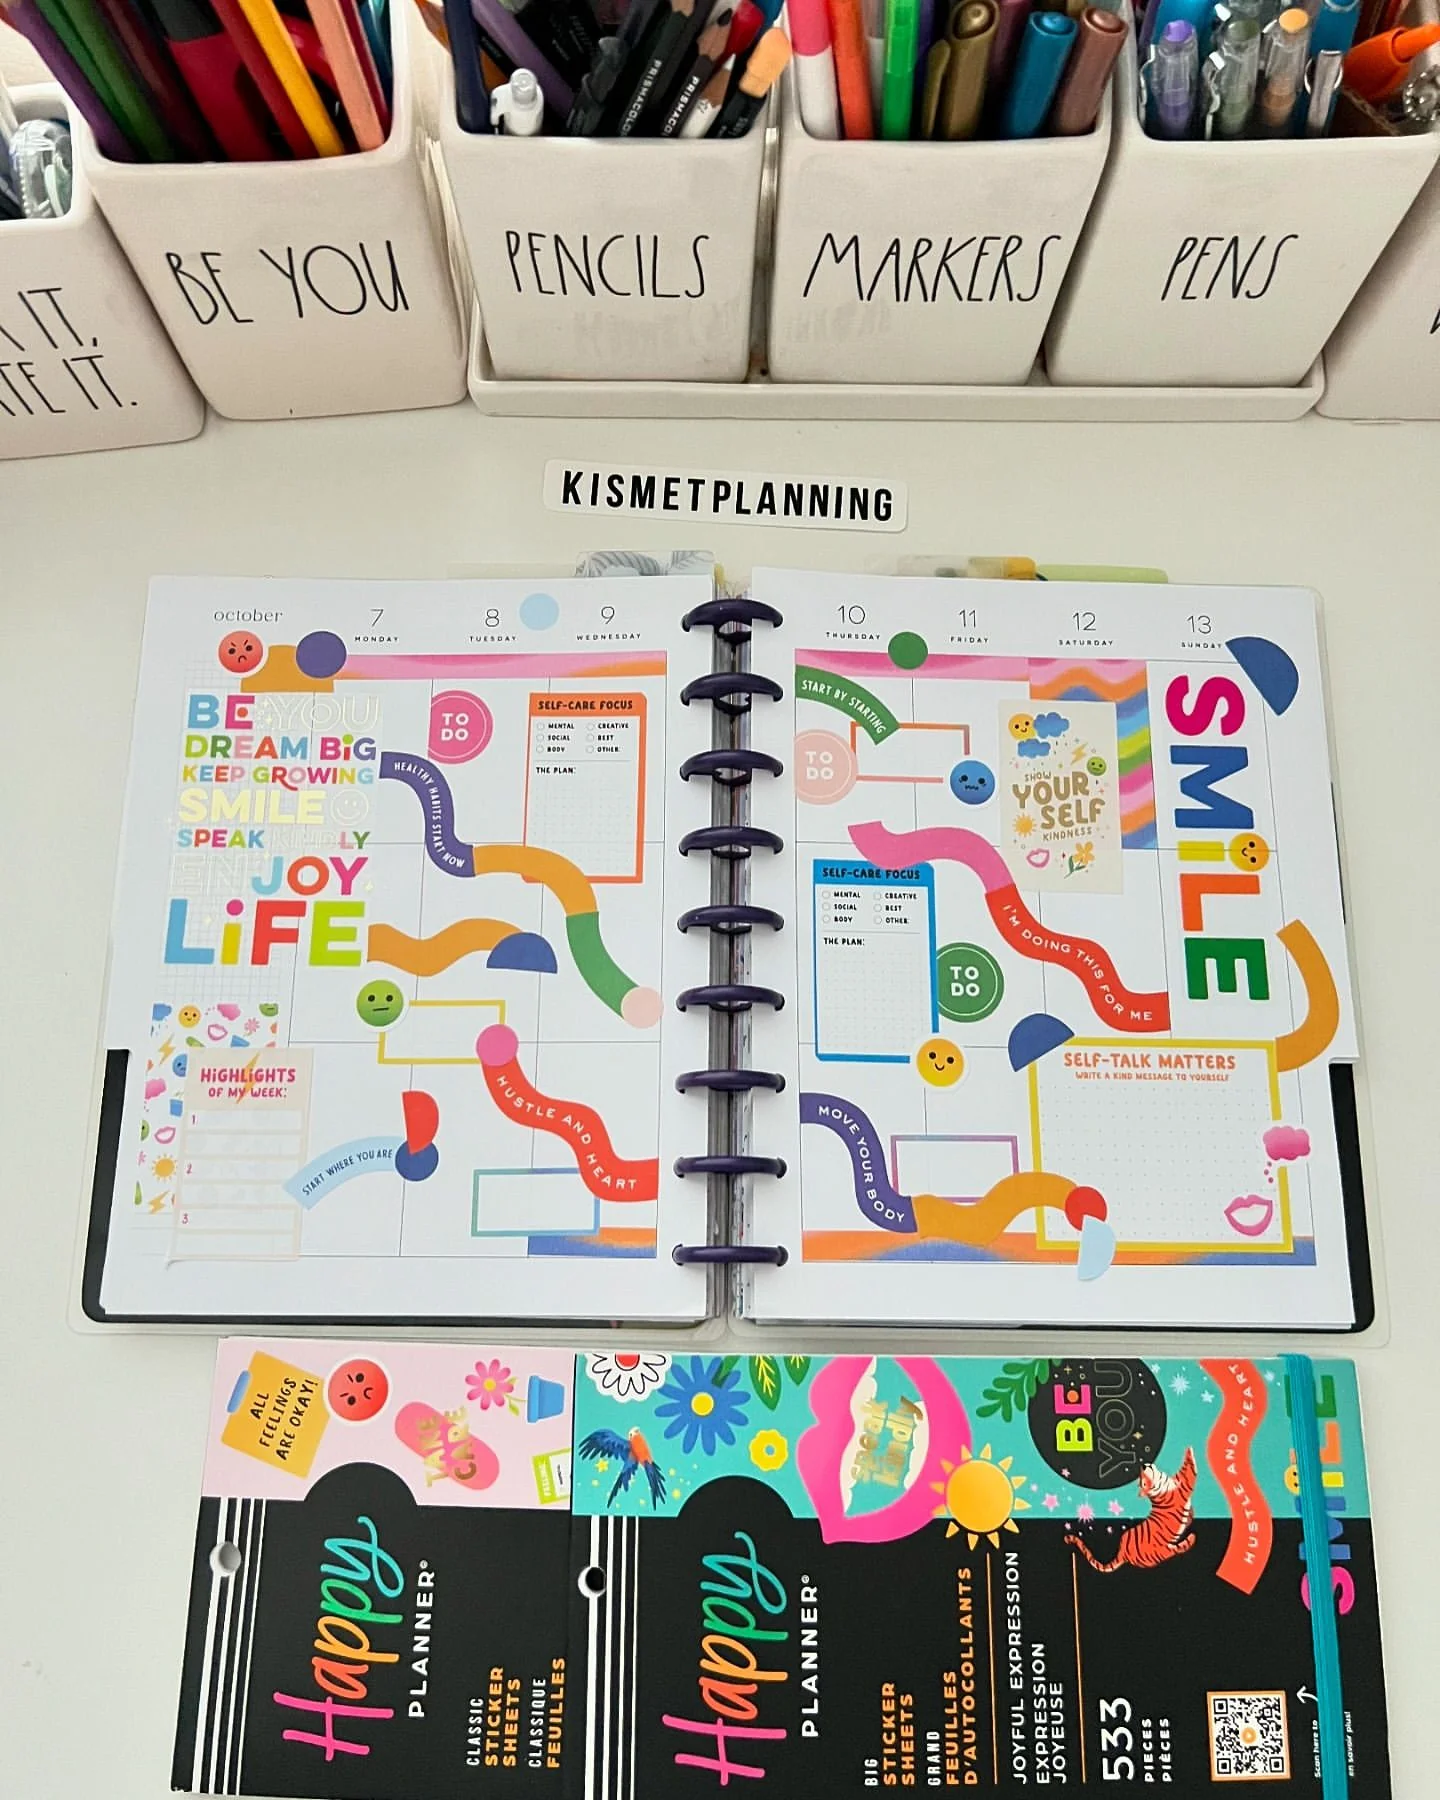 IT,
TE IT.
BE YOU
PENCILS
MARKERS
PENS
PRISMACOLOR
PRISMAC
KISMETPLANNING
october
7
MONDAY
8
TUESDAY
9
WEDNESDAY
10
THURSDAY
11
FRIDAY
12
SATURDAY
13
SUNDAY
BE YOU
DREAM BiG
KEEP GROWING
SMILE
SPEAK KINDLY
ENJOY
LiFE
TO
DO
HEALTHY HABITS START NOW
SELF-CARE FOCUS
MENTAL
CREATIVE
SOCIAL
REST
BODY
OTHER:
THE PLAN:
HiGHLiGHTS
OF MY WEEK:
1.
2
3
START WHERE YOU ARE
HUSTLE AND HEART
START BY STARTING
TO
DO
SHOW
YOUR
SELF
KINDNESS
SMiLE
SELF-CARE FOCUS
MENTAL
CREATIVE
SOCIAL
REST
BODY
OTHER:
THE PLAN:
TO
DO
I'M DOING THIS FOR ME
SELF-TALK MATTERS
WRITE A KIND MESSAGE TO YOURSELF
MOVE YOUR BODY
ALL
FEELINGS
ARE OKAY!
TAKE
CARE
Happy
PLANNER®
CLASSIC
STICKER
SHEETS
CLASSIQUE
FEUILLES
speak
kindly
BE
YOU
HUSTLE AND HEART
SMiLE
Happy
PLANNER®
BIG
STICKER
SHEETS
GRAND
FEUILLES
D'AUTOCOLLANTS
JOYFUL EXPRESSION
EXPRESSION
JOYEUSE
533
PIECES
PIÈCES
Scan here to
en savoir plus!